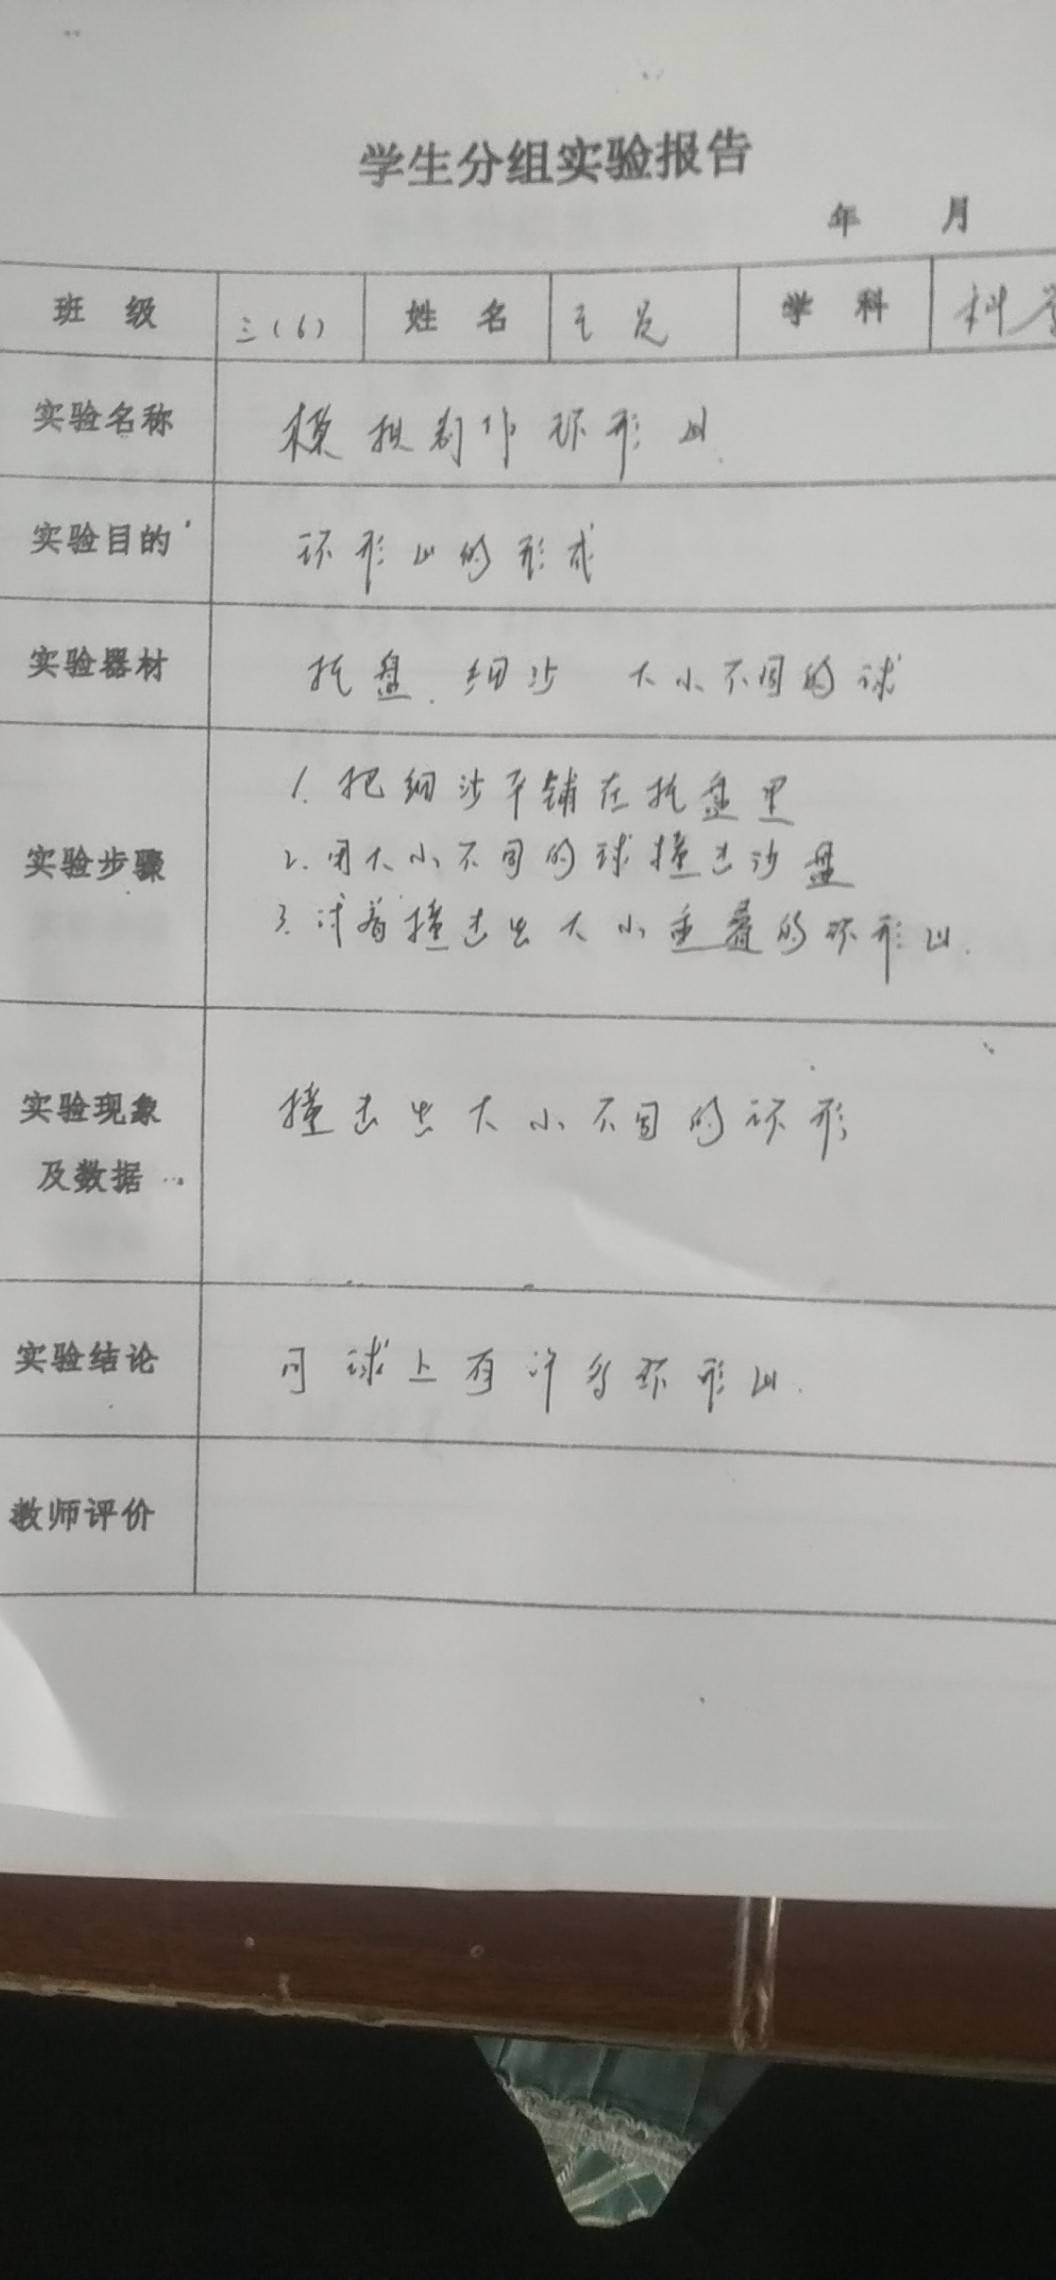 学生分组实验报告
年 月
班 级 三(6) 姓 名 学 科 科学
实验名称 模拟制作环形山
实验目的 环形山的形成
实验器材 托盘. 细沙 大小不同的球
1. 把细沙平铺在托盘里
实验步骤 2. 用大小不同的球撞击沙盘
3. 试着撞击出大小重叠的环形山.
实验现象 撞击出大小不同的环形
及数据
实验结论 月球上有许多环形山.
教师评价